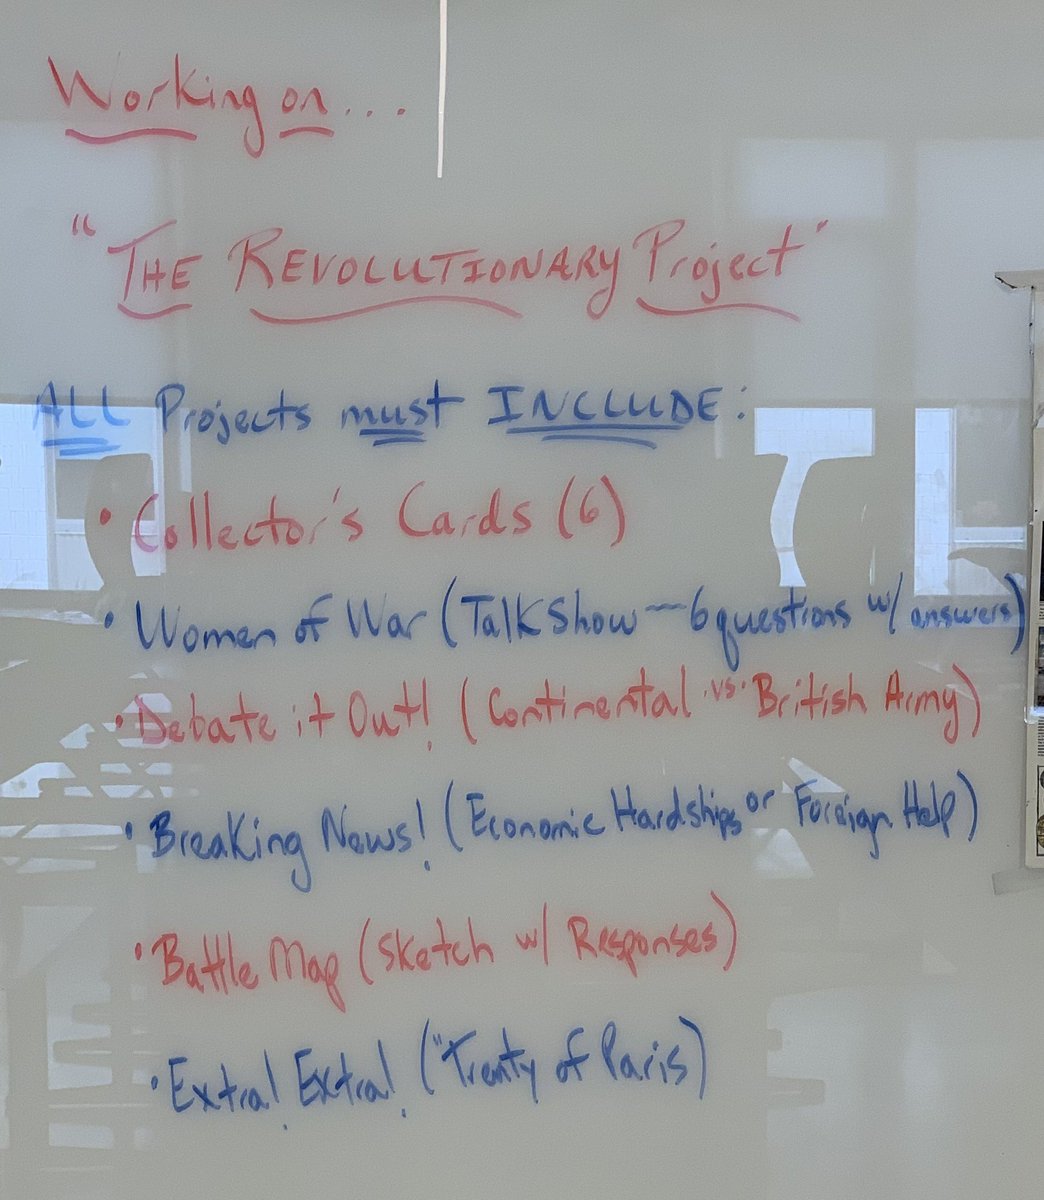 Working on...
"THE REVOLUTIONARY Project"
ALL Projects must INCLUDE:
• Collector's Cards (6)
• Women of War (Talk Show — 6 questions w/ answers)
• Debate it Out! (Continental .vs. British Army)
• Breaking News! (Economic Hardships or Foreign Help)
• Battle Map (Sketch w/ Responses)
• Extra! Extra! ("Treaty of Paris)